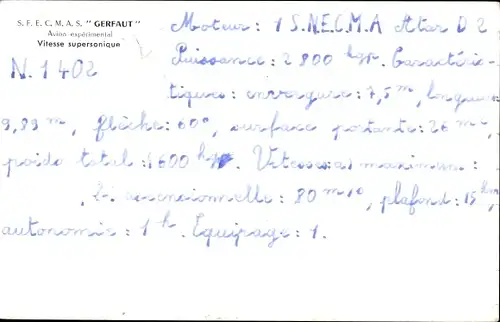 S. F. E. C. M. A. S. "GERFAUT"
Avion expérimental
Vitesse supersonique
N. 1402
Moteur : 1 S.N.E.C.M.A Atar D 2
Puissance : 2 800 kgp. Caractéris-
tiques : envergure : 7,5 m, longueur
9,89 m, flèche : 60°, surface portante : 26 m²,
poids total : 1600 kg. Vitesses maximum :
ascensionnelle : 80 m, plafond : 15 km,
autonomie : 1 h. Equipage : 1.